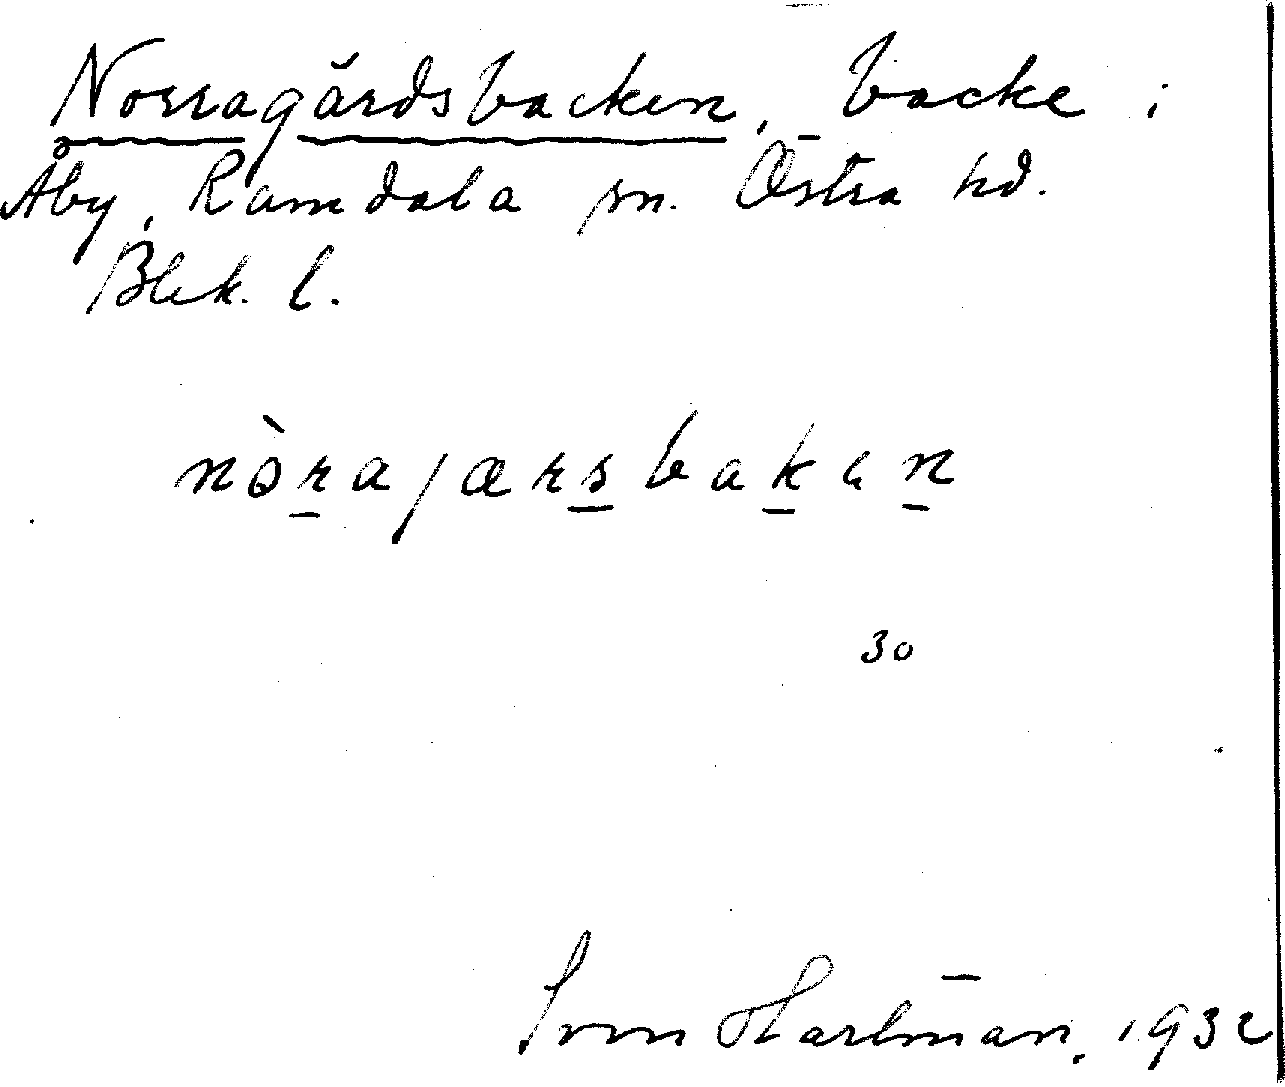 Norragårdsbacken, backe i
Åby, Ramdala sn. Östra hd.
Blek. l.
nòrajærsbakən
30
Sven Hartman, 1932